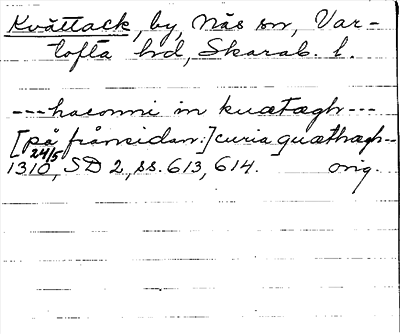 Kvättack, by, Näs sn, Var-
tofta hd, Skarab. l.
---haconni in kuætægh---
[på frånsidan:] curia guæthægh--
24/5
1310, SD 2, ss. 613, 614. orig.